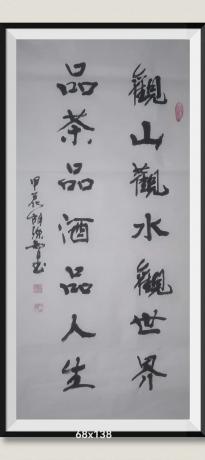 觀山觀水觀世界
品茶品酒品人生
甲辰
68x138